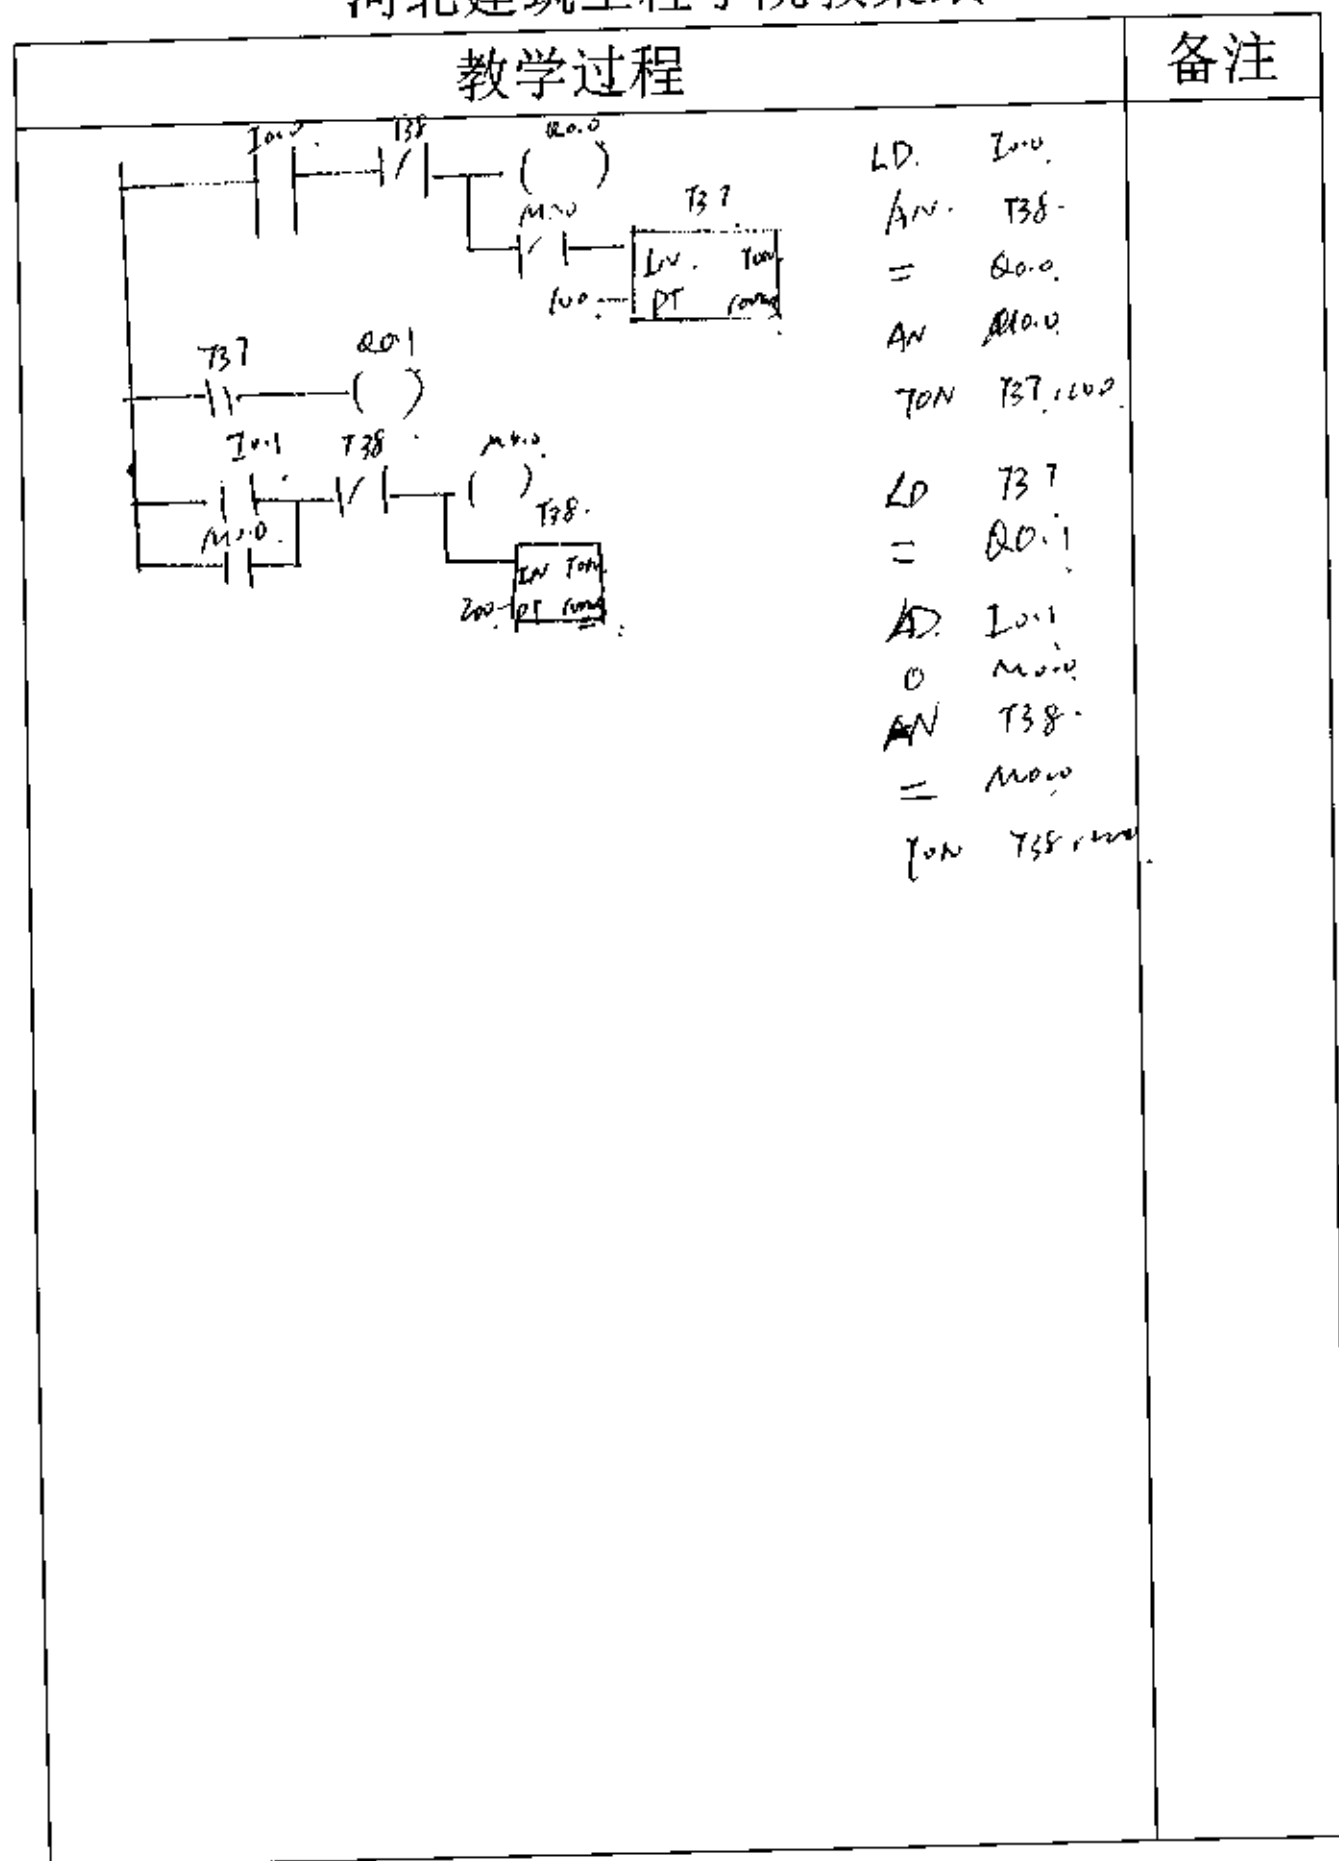 教学过程 备注
I0.0 T38 Q0.0
M0.0 T37
IN TON
100 PT 100ms
T37 Q0.1
I0.1 T38 M0.0
M0.0 T38
IN TON
200 PT 100ms
LD I0.0
AN T38
= Q0.0
AN M0.0
TON T37,100
LD T37
= Q0.1
LD I0.1
O M0.0
AN T38
= M0.0
TON T38,